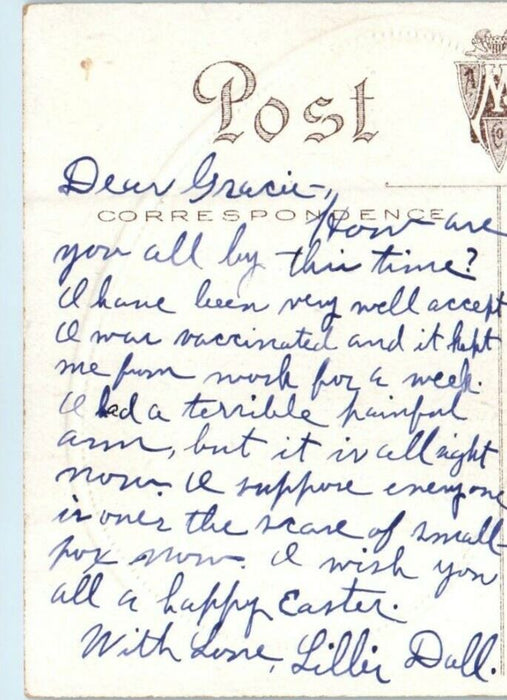 Post
A M Co
Dear Gracie—,
CORRESPONDENCE
How are
you all by this time?
I have been very well accept
I was vaccinated and it kept
me from work for a week.
I had a terrible painful
arm, but it is all right
now. I suppose everyone
is over the scare of small
pox now. I wish you
all a happy Easter.
With Love, Lillie Dall.